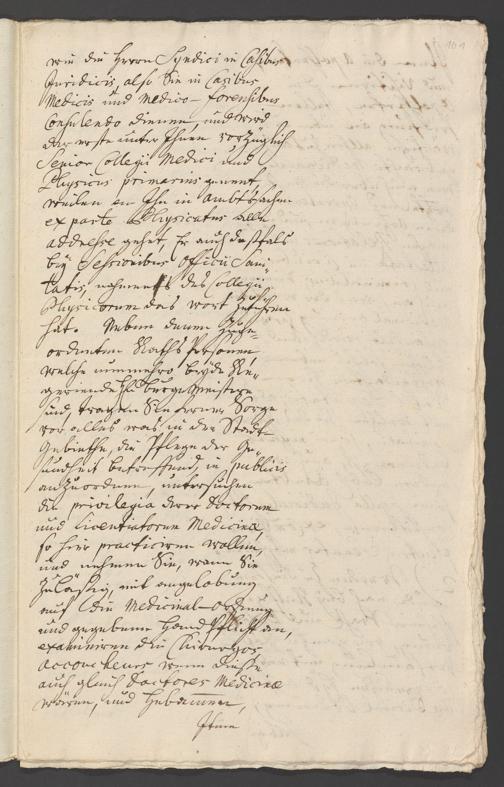 101
wie die Herren Syndici in Casibus
Juridicis, also Sie in Casibus
Medicis und Medico-forensibus
Consulendo dienen, und wird
der erste unter Ihnen vorzüglich
Senior Collegii Medici und
Physicus primarius genent
weilen an Ihn in Ambtssachen
ex parte Physicatus alle
addresse gehet, Er auch dessfals
bey Sessionibus Officii Sani-
tatis, nahmens des Collegii
Physicorum das wort zuführen
hat. Neben denen Zuge-
ordneten Raths Personen
welche nunmehro beyde Re-
gierende H. Burgermeistere
sind, tragen Sie ferner Sorge
vor alles was in der Stadt
Gebiethe, die Pflege der Ge-
sundheit betreffend, in publicis
anzuordnen, untersuchen
die privilegia derer Doctorum
und Licentiatorum Medicinæ,
so hier practiciren wollen,
und nehmen Sie, wann Sie
zuläßig, mit angelobung
auf die Medicinal-Ordnung
und gegebene Hand Pflicht an,
examiniren die Chirurgos,
accoucheurs wenn diese
auch gleich Doctores Medicinæ
wären, und Hebammen,
Ihnen